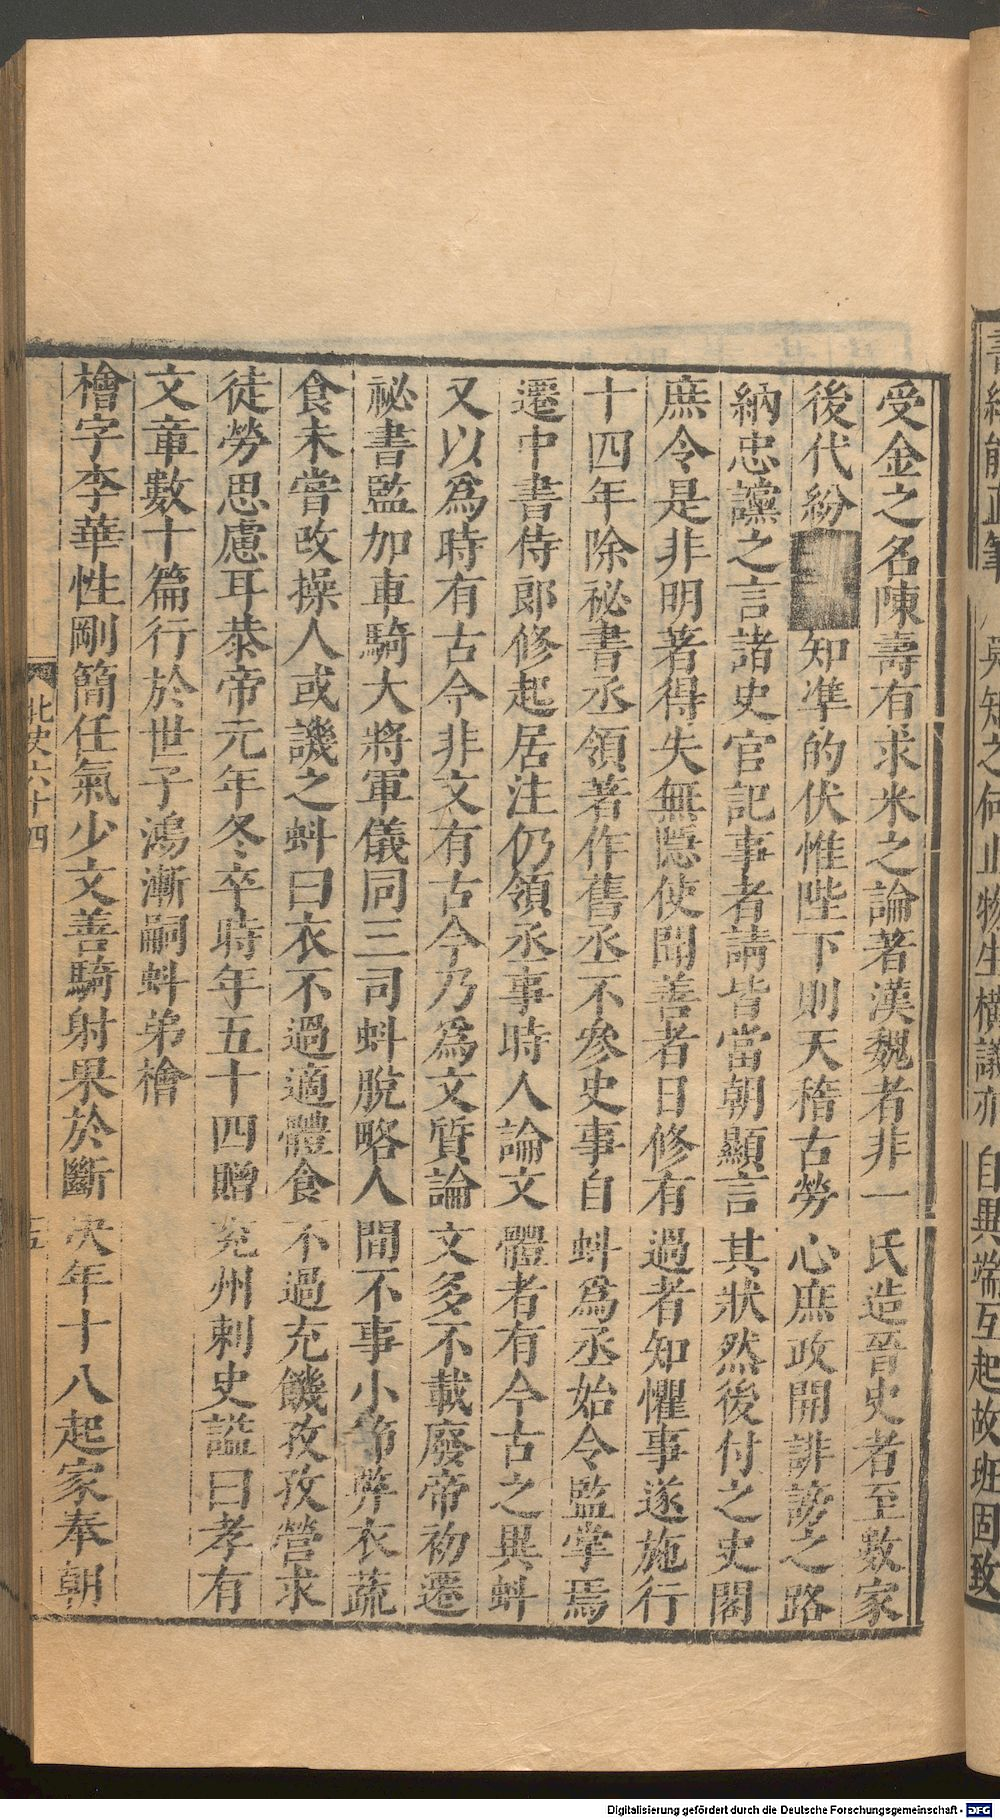 受金之名陳壽有求米之論著漢魏者非一氏造晉史者至數家
後代紛知準的伏惟陛下則天稽古勞心庶政開誹謗之路
納忠讜之言諸史官記事者請皆當朝顯言其狀然後付之史閣
庶令是非明著得失無隱使聞善者日修有過者知懼事遂施行
十四年除祕書丞領著作舊丞不參史事自蚪爲丞始令監掌焉
遷中書侍郎修起居注仍領丞事時人論文體者有今古之異蚪
又以爲時有古今非文有古今乃爲文質論文多不載廢帝初遷
祕書監加車騎大將軍儀同三司蚪脫略人間不事小節弊衣蔬
食未嘗改操人或譏之蚪曰衣不過適體食不過充饑孜孜營求
徒勞思慮耳恭帝元年冬卒時年五十四贈兗州刺史謚曰孝有
文章數十篇行於世子鴻漸嗣蚪弟檜
檜字季華性剛簡任氣少文善騎射果於斷決年十八起家奉朝
北史六十四
五
Digitalisierung gefördert durch die Deutsche Forschungsgemeinschaft - DFG